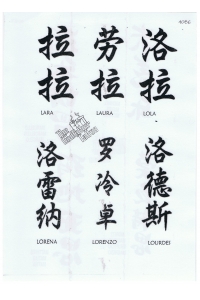 拉拉
LARA
劳拉
LAURA
洛拉
LOLA
洛雷纳
LORENA
罗冷卓
LORENZO
洛德斯
LOURDEI